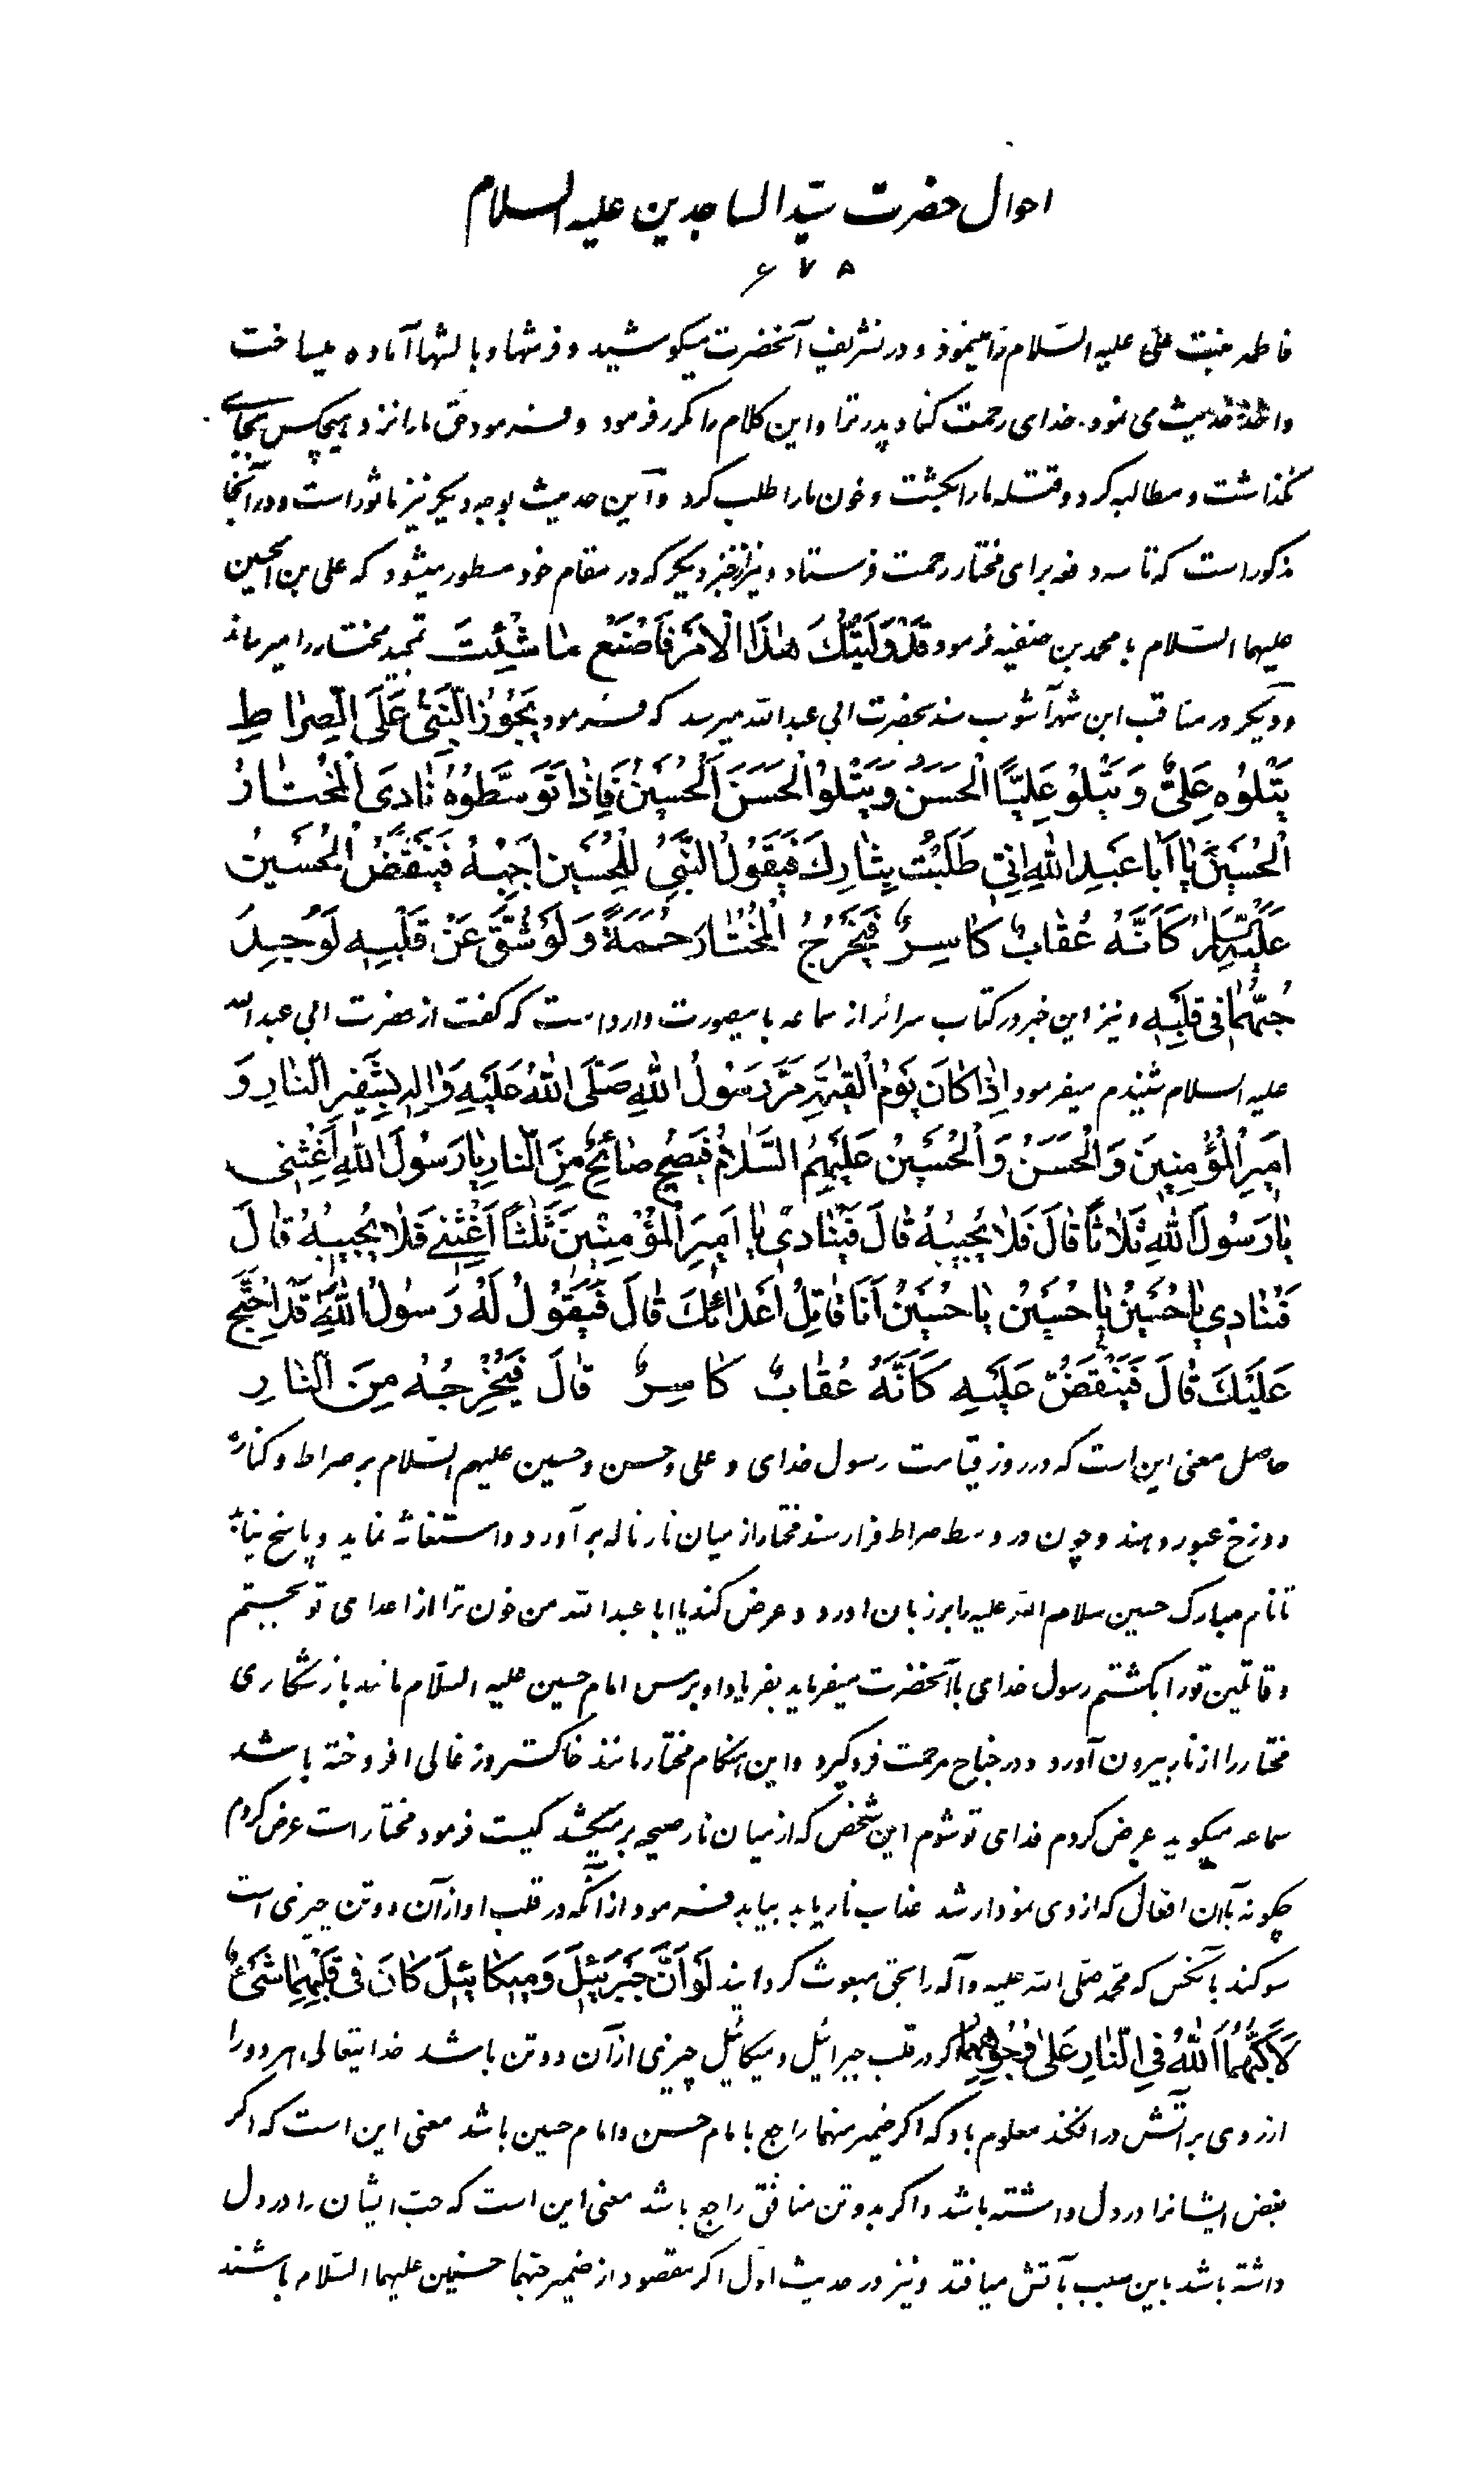 احوال حضرت سیّد الساجدین علیه السلام
۶۷۵
فاطمه بنت علی علیه السّلام را مینمود و در تشریف آنحضرت میکوشید و فرشها و بالشها آماده میساخت
و اخذ حدیث می نمود. خدای رحمت کناد پدر ترا و این کلام را مکرر فرمود و فرمود حق ما را نزد هیچکس بجای
نگذاشت و مطالبه کرد و قتله ما را بکشت و خون ما را طلب کرد و این حدیث بوجه دیگر نیز ماثور است و در آنجا
مذکور است که تا سه دفعه برای مختار رحمت فرستاد و نیز از خبر دیگر که در مقام خود مسطور میشود که علی بن الحسین
علیهما السّلام با محمد بن حنفیه فرمود قَدْ وَلَّیْتُكَ هٰذَا الْاَمْرَ فَاصْنَعْ مٰا شِئْتَ تمجید مختار را میرساند
و دیگر در مناقب ابن شهرآشوب سند بحضرت ابی عبدالله میرسد که فرمود یَجُوزُ النَّبِیُّ عَلَی الصِّرٰاطِ
یَتْلُوهِ عَلِیٌّ وَ یَتْلُو عَلِیّاً الْحَسَنُ وَ یَتْلُوا الْحَسَنَ الْحُسَیْنُ فَاِذٰا تَوَسَّطُوهُ نٰادَی الْمُخْتٰارُ
الْحُسَیْنَ یٰا اَبٰا عَبْدِ اللهِ اِنِّی طَلَبْتُ بِثٰارِكَ فَیَقُولُ النَّبِیُّ لِلْحُسَیْنِ اَجِبْهُ فَیَنْقَضُّ الْحُسَیْنُ
کَاَنَّهُ عُقٰابٌ کٰاسِرٌ فَیُخْرِجُ الْمُخْتٰارَ حُمَمَةً وَ لَوْ شُقَّ عَنْ قَلْبِهِ لَوُجِدَ
حُبُّهُمٰا فِی قَلْبِهِ و نیز این خبر در کتاب سرائر از سماعه باینصورت وارد است که گفت از حضرت ابی عبدالله
علیه السلام شنیدم میفرمود اِذٰا کٰانَ یَوْمُ الْقِیٰمَةِ مَرَّ رَسُولُ اللهِ صَلَّی اللهُ عَلَیْهِ وَ اٰلِهِ بِشَفِیرِ النّٰارِ وَ
اَمِیرُ الْمُؤْمِنِینَ وَ الْحَسَنُ وَ الْحُسَیْنُ عَلَیْهِمُ السَّلٰامُ فَیَصِیحُ صٰائِحٌ مِنَ النّٰارِ یٰا رَسُولَ اللهِ اَغِثْنِی
یٰا رَسُولَ اللهِ ثَلٰاثاً قٰالَ فَلٰا یُجِیبُهُ قٰالَ فَیُنٰادِی یٰا اَمِیرَ الْمُؤْمِنِینَ ثَلٰثاً اَغِثْنِی فَلٰا یُجِیبُهُ قٰالَ
فَیُنٰادِی یٰا حُسَیْنُ یٰا حُسَیْنُ یٰا حُسَیْنُ اَنَا قٰاتِلُ اَعْدٰائِكَ قٰالَ فَیَقُولُ لَهُ رَسُولُ اللهِ قَدِ احْتَجَّ
عَلَیْكَ قٰالَ فَیَنْقَضُّ عَلَیْهِ کَاَنَّهُ عُقٰابٌ کٰاسِرٌ قٰالَ فَیُخْرِجُهُ مِنَ النّٰارِ
حاصل معنی این است که در روز قیامت رسول خدای و علی و حسن و حسین علیهم السّلام بر صراط و کنار
دوزخ عبور دهند و چون در وسط صراط فرا رسند مختار از میان نار ناله بر آورد و استغاثه نماید و پاسخ نیابد
تا نام مبارک حسین سلام الله علیه را بر زبان آورد و عرض کند یا ابا عبدالله من خون ترا از اعدای تو بجستم
و قاتلین تو را بکشتم رسول خدای با آنحضرت میفرماید بفریاد او برس امام حسین علیه السّلام مانند باز شکاری
مختار را از نار بیرون آورد و در جناح مرحمت فرو گیرد و این هنگام مختار مانند خاکستر و زغالی افروخته باشد
سماعه میگوید عرض کردم فدای تو شوم این شخص که از میان نار صیحه بر میکشد کیست فرمود مختار است عرض کردم
چگونه با آن افعال که از وی نمودار شد عذاب نار باید بیابد فرمود از آنکه در قلب او از آن دو تن چیزی است
سوگند بآنکس که محمّد صلی الله علیه و آله را بحق مبعوث گردانید لَوْ اَنَّ جَبْرَئِیلَ وَ مِیکٰائِیلَ کٰانَ فِی قَلْبَیْهِمٰا شَیْءٌ
لَاَکَبَّهُمَا اللهُ فِی النّٰارِ عَلٰی وُجُوهِهِمٰا اگر در قلب جبرائیل و میکائیل چیزی از آن دو تن باشد خدایتعالی هر دو را
از روی بر آتش در افکند معلوم باد که اگر ضمیر منهما راجع با مام حسن و امام حسین باشد معنی این است که اگر
بغض ایشانرا در دل داشته باشد و اگر بدو تن منافق راجع باشد معنی این است که حبّ ایشان را در دل
داشته باشد باین سبب بآتش میافتد و نیز در حدیث اول اگر مقصود از ضمیر حبّهما حسنین علیهما السّلام باشند